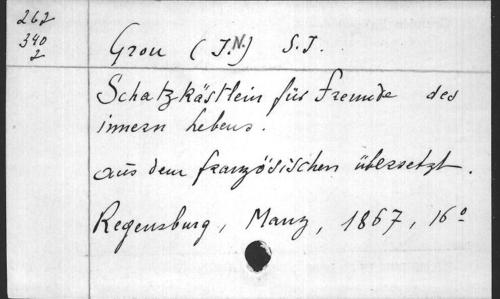 262
340
2
Grou (J.N.) S.J.
Schatzkästlein für Freunde des
innern Lebens.
aus dem französischen übersetzt.
Regensburg, Manz, 1867, 16º